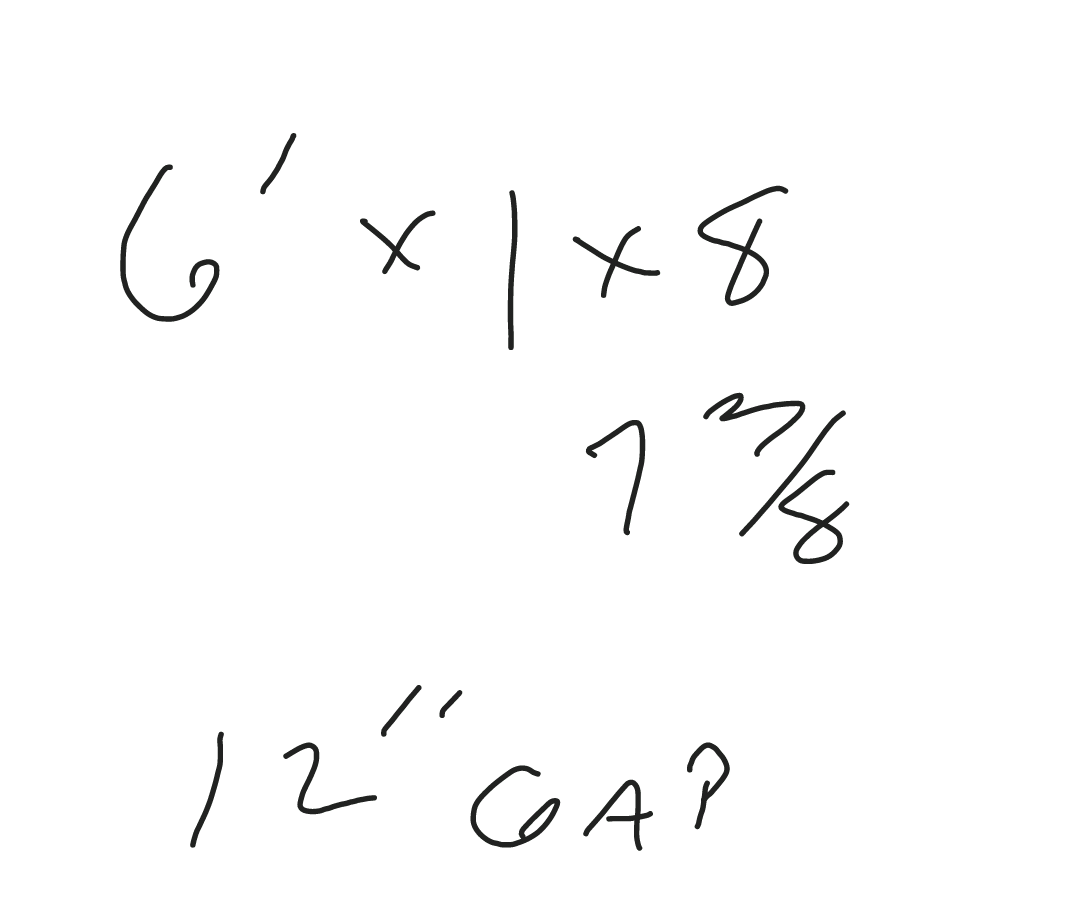 6' x 1 x 8
7 7/8
12" GAP